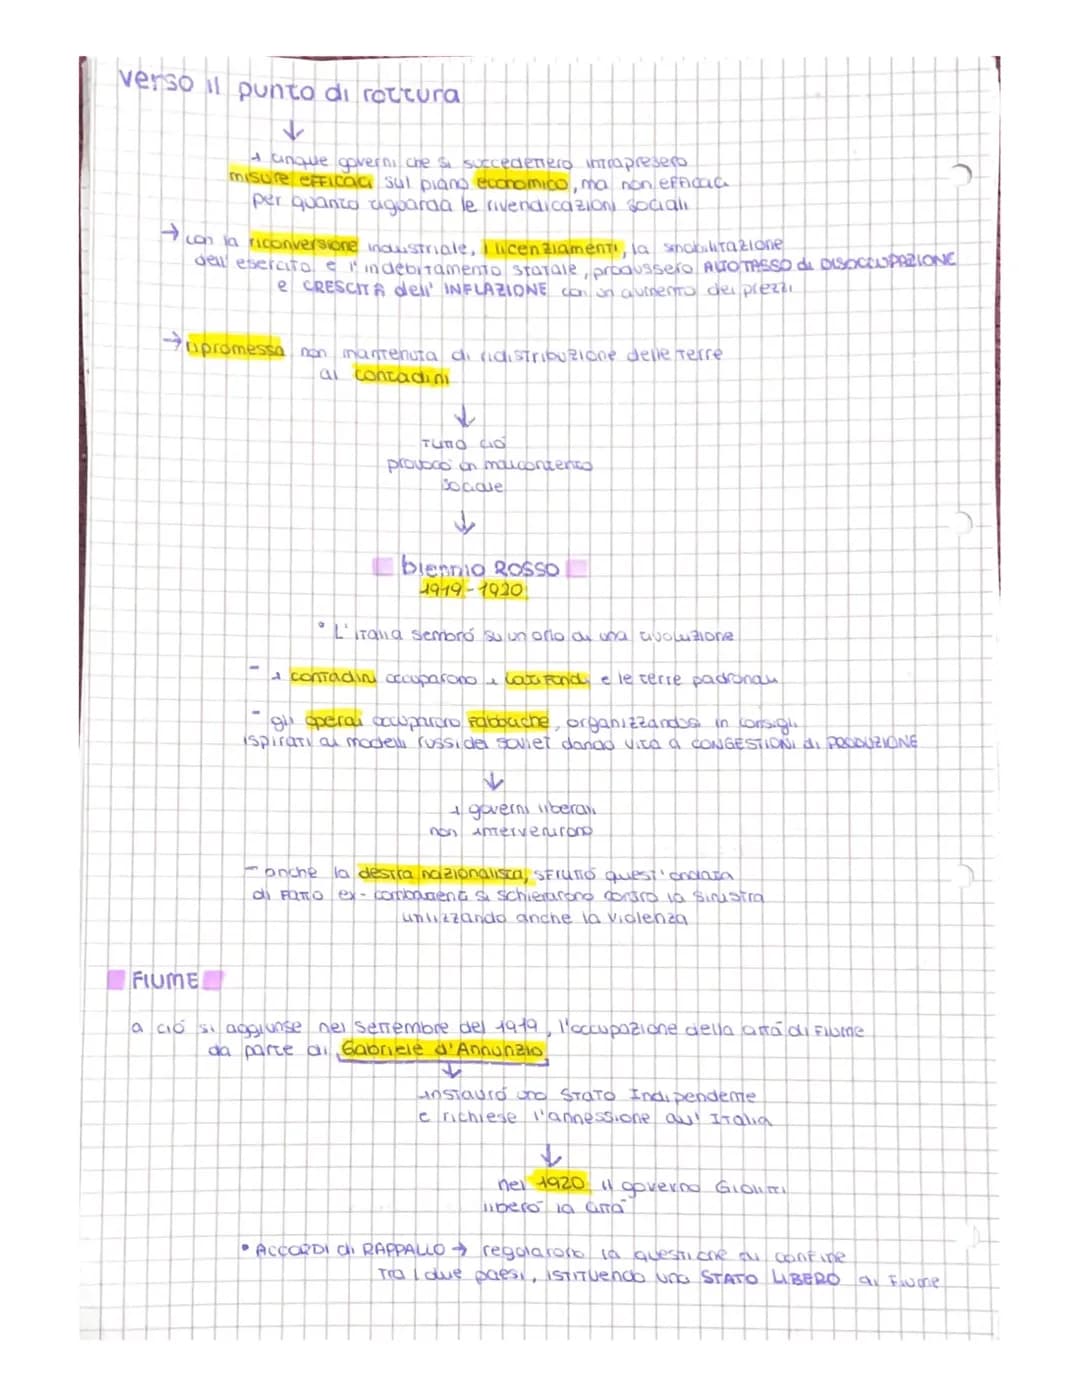 verso il punto di rottura
↓
i cinque governi che si succedettero intrapresero
misure EFFICACI sul piano economico, ma non efficaci
per quanto riguarda le rivendicazioni sociali
→ con la riconversione industriale, i licenziamenti, la smobilitazione
dell'esercito e l'indebitamento statale, produssero ALTO TASSO di DISOCCUPAZIONE
e CRESCITA dell' INFLAZIONE con un aumento dei prezzi
→ promessa non mantenuta di ridistribuzione delle terre
ai contadini
↓
TUTTO ciò
provocò un malcontento
sociale
↓
biennio ROSSO
1919-1920
° L'italia sembrò su un orlo di una rivoluzione
- i contadini occuparono i latifondi e le terre padronali
- gli operai occuparono Fabbriche, organizzandosi in consigli
ispirati ai modelli russi dei soviet dando vita a CONGESTIONI di PRODUZIONE
↓
i governi liberali
non intervenirono
- anche la destra nazionalista, sfruttò quest'ondata
di FATTO ex-combattenti si schierarono contro la sinistra
utilizzando anche la violenza
FIUME
a ciò si aggiunse nel settembre del 1919, l'occupazione della città di Fiume
da parte di Gabriele d'Annunzio
↓
instaurò uno STATO Indipendente
e richiese l'annessione all' ITALIA
↓
nel 1920 il governo Giolitti
liberò la città
• ACCORDI di RAPPALLO → regolarono la questione di confine
TRA i due paesi, ISTITUENDO uno STATO LIBERO di Fiume